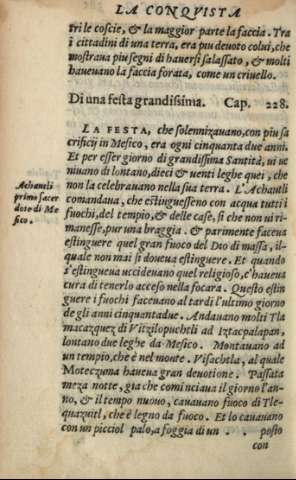 LA CONQVISTA
tri le coscie, & la maggior parte la faccia. Tra
i cittadini di una terra, era piu devoto colui, che
mostrava piu segni di haversi salassato, & molti
havevano la faccia forata, come un crivello.
Di una festa grandissima. Cap. 228.
LA FESTA, che solennizavano, con piu sa
crificij in Mesico, era ogni cinquanta due anni.
Et per esser giorno di grandissima Santità, vi ve
nivano di lontano, dieci & venti leghe quei, che
non la celebravano nella sua terra. L'Achautli
comandava, che estinguesseno con acqua tutti i
fuochi, del tempio, & delle case, si che non vi ri-
manesse, pur una braggia. & parimente faceva
estinguere quel gran fuoco del Dio di massa, il-
quale non mai si doveva estinguere. Et quando
s'estingueva uccidevano quel religioso, c'haveva
cura di tenerlo acceso nella focara. Questo estin
guere i fuochi facevano al tardi l'ultimo giorno
de gli anni cinquantadue. Andavano molti Tla
macazquez di Vitzilopuchtli ad Iztacpalapan,
lontano due leghe da Mesico. Montavano ad
un tempio, che è nel monte. Visachtla, al quale
Moteczuma haveva gran devotione. Passata
meza notte, gia che cominciava il giorno l'an-
no, & il tempo nuovo, cavavano fuoco di Tle-
quazuitl, che è legno da fuoco. Et lo cavavano
con un picciol palo, a foggia di un . . posto
con
Achautli
primo sacer
dote di Me
sico.